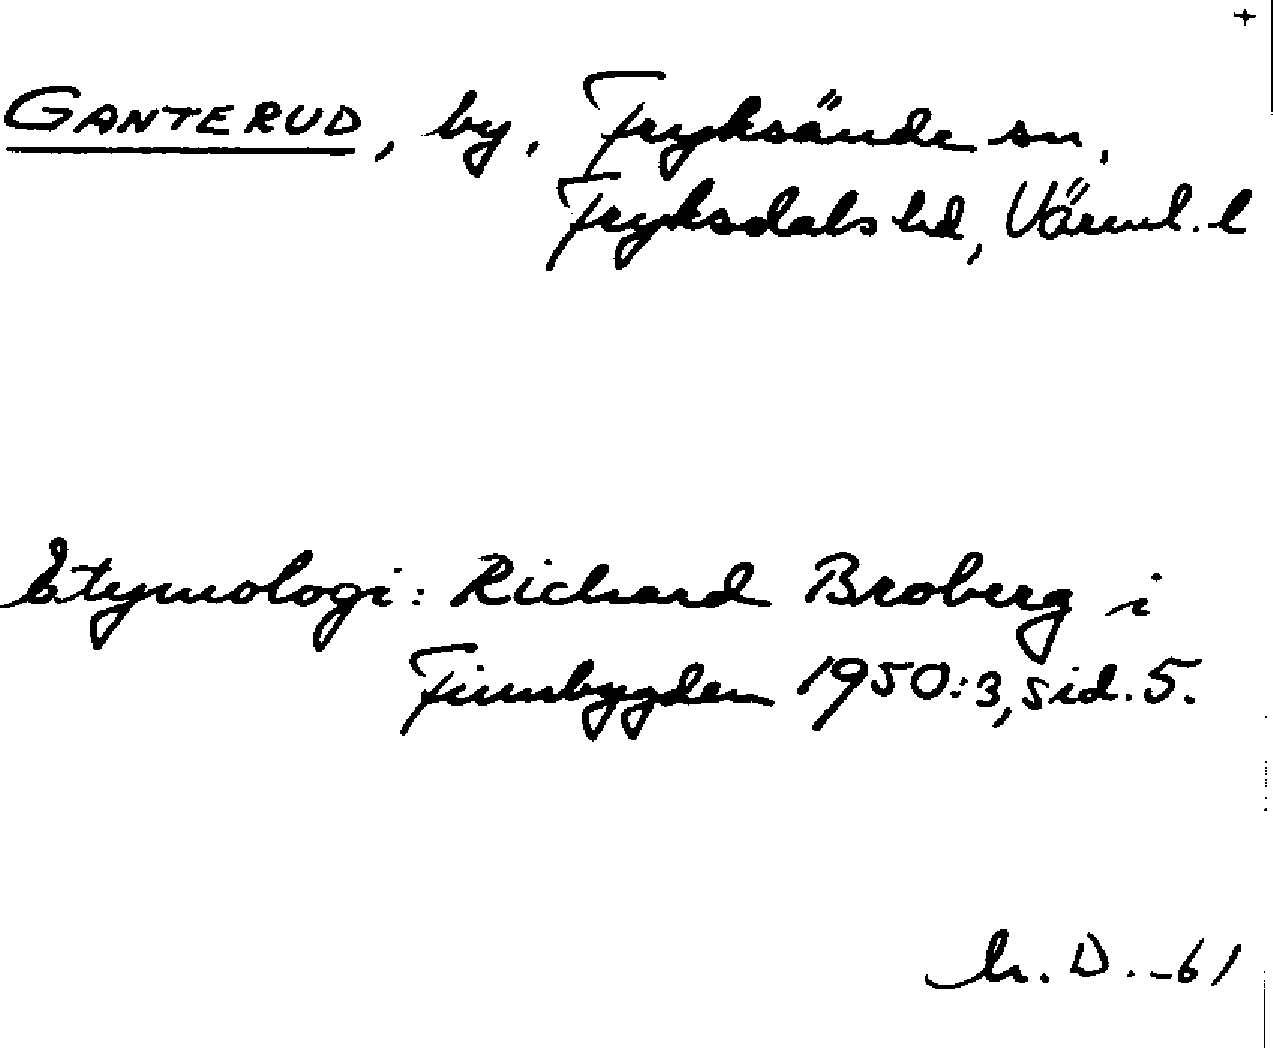 GANTERUD, by, Fryksände sn,
Fryksdals hd, Värml. l
Etymologi: Richard Broberg i
Finnbygden 1950:3, sid. 5.
D. -61